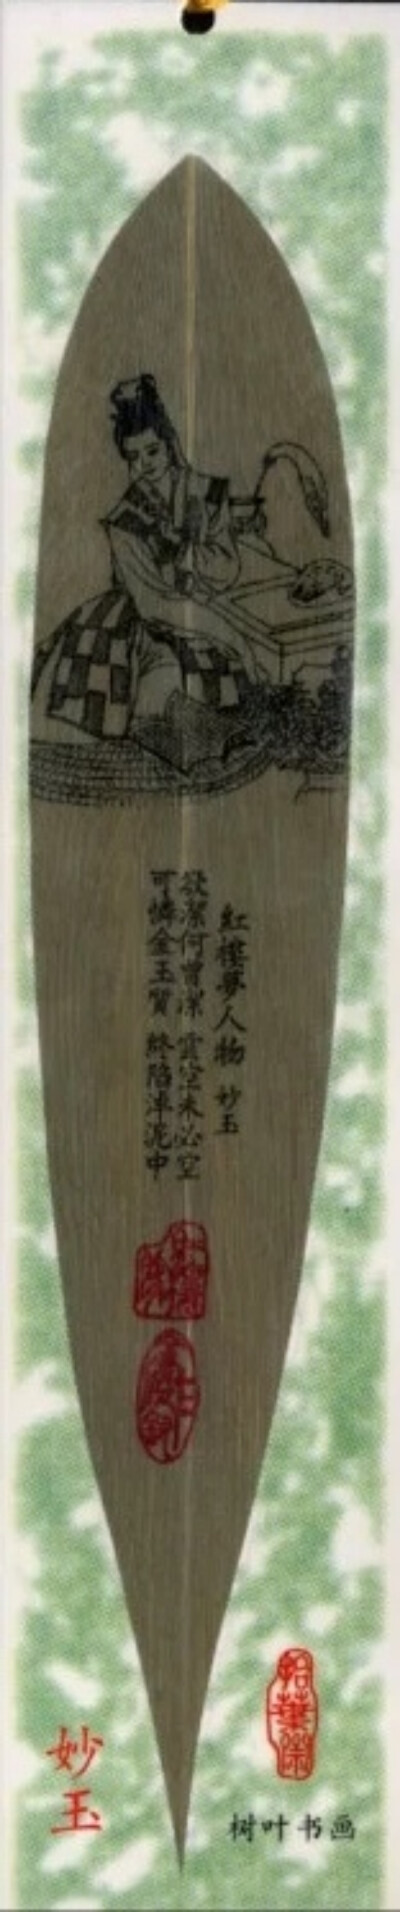 紅樓夢人物 妙玉
欲潔何曾潔 雲空未必空
可憐金玉質 終陷淖泥中
妙玉
树叶书画